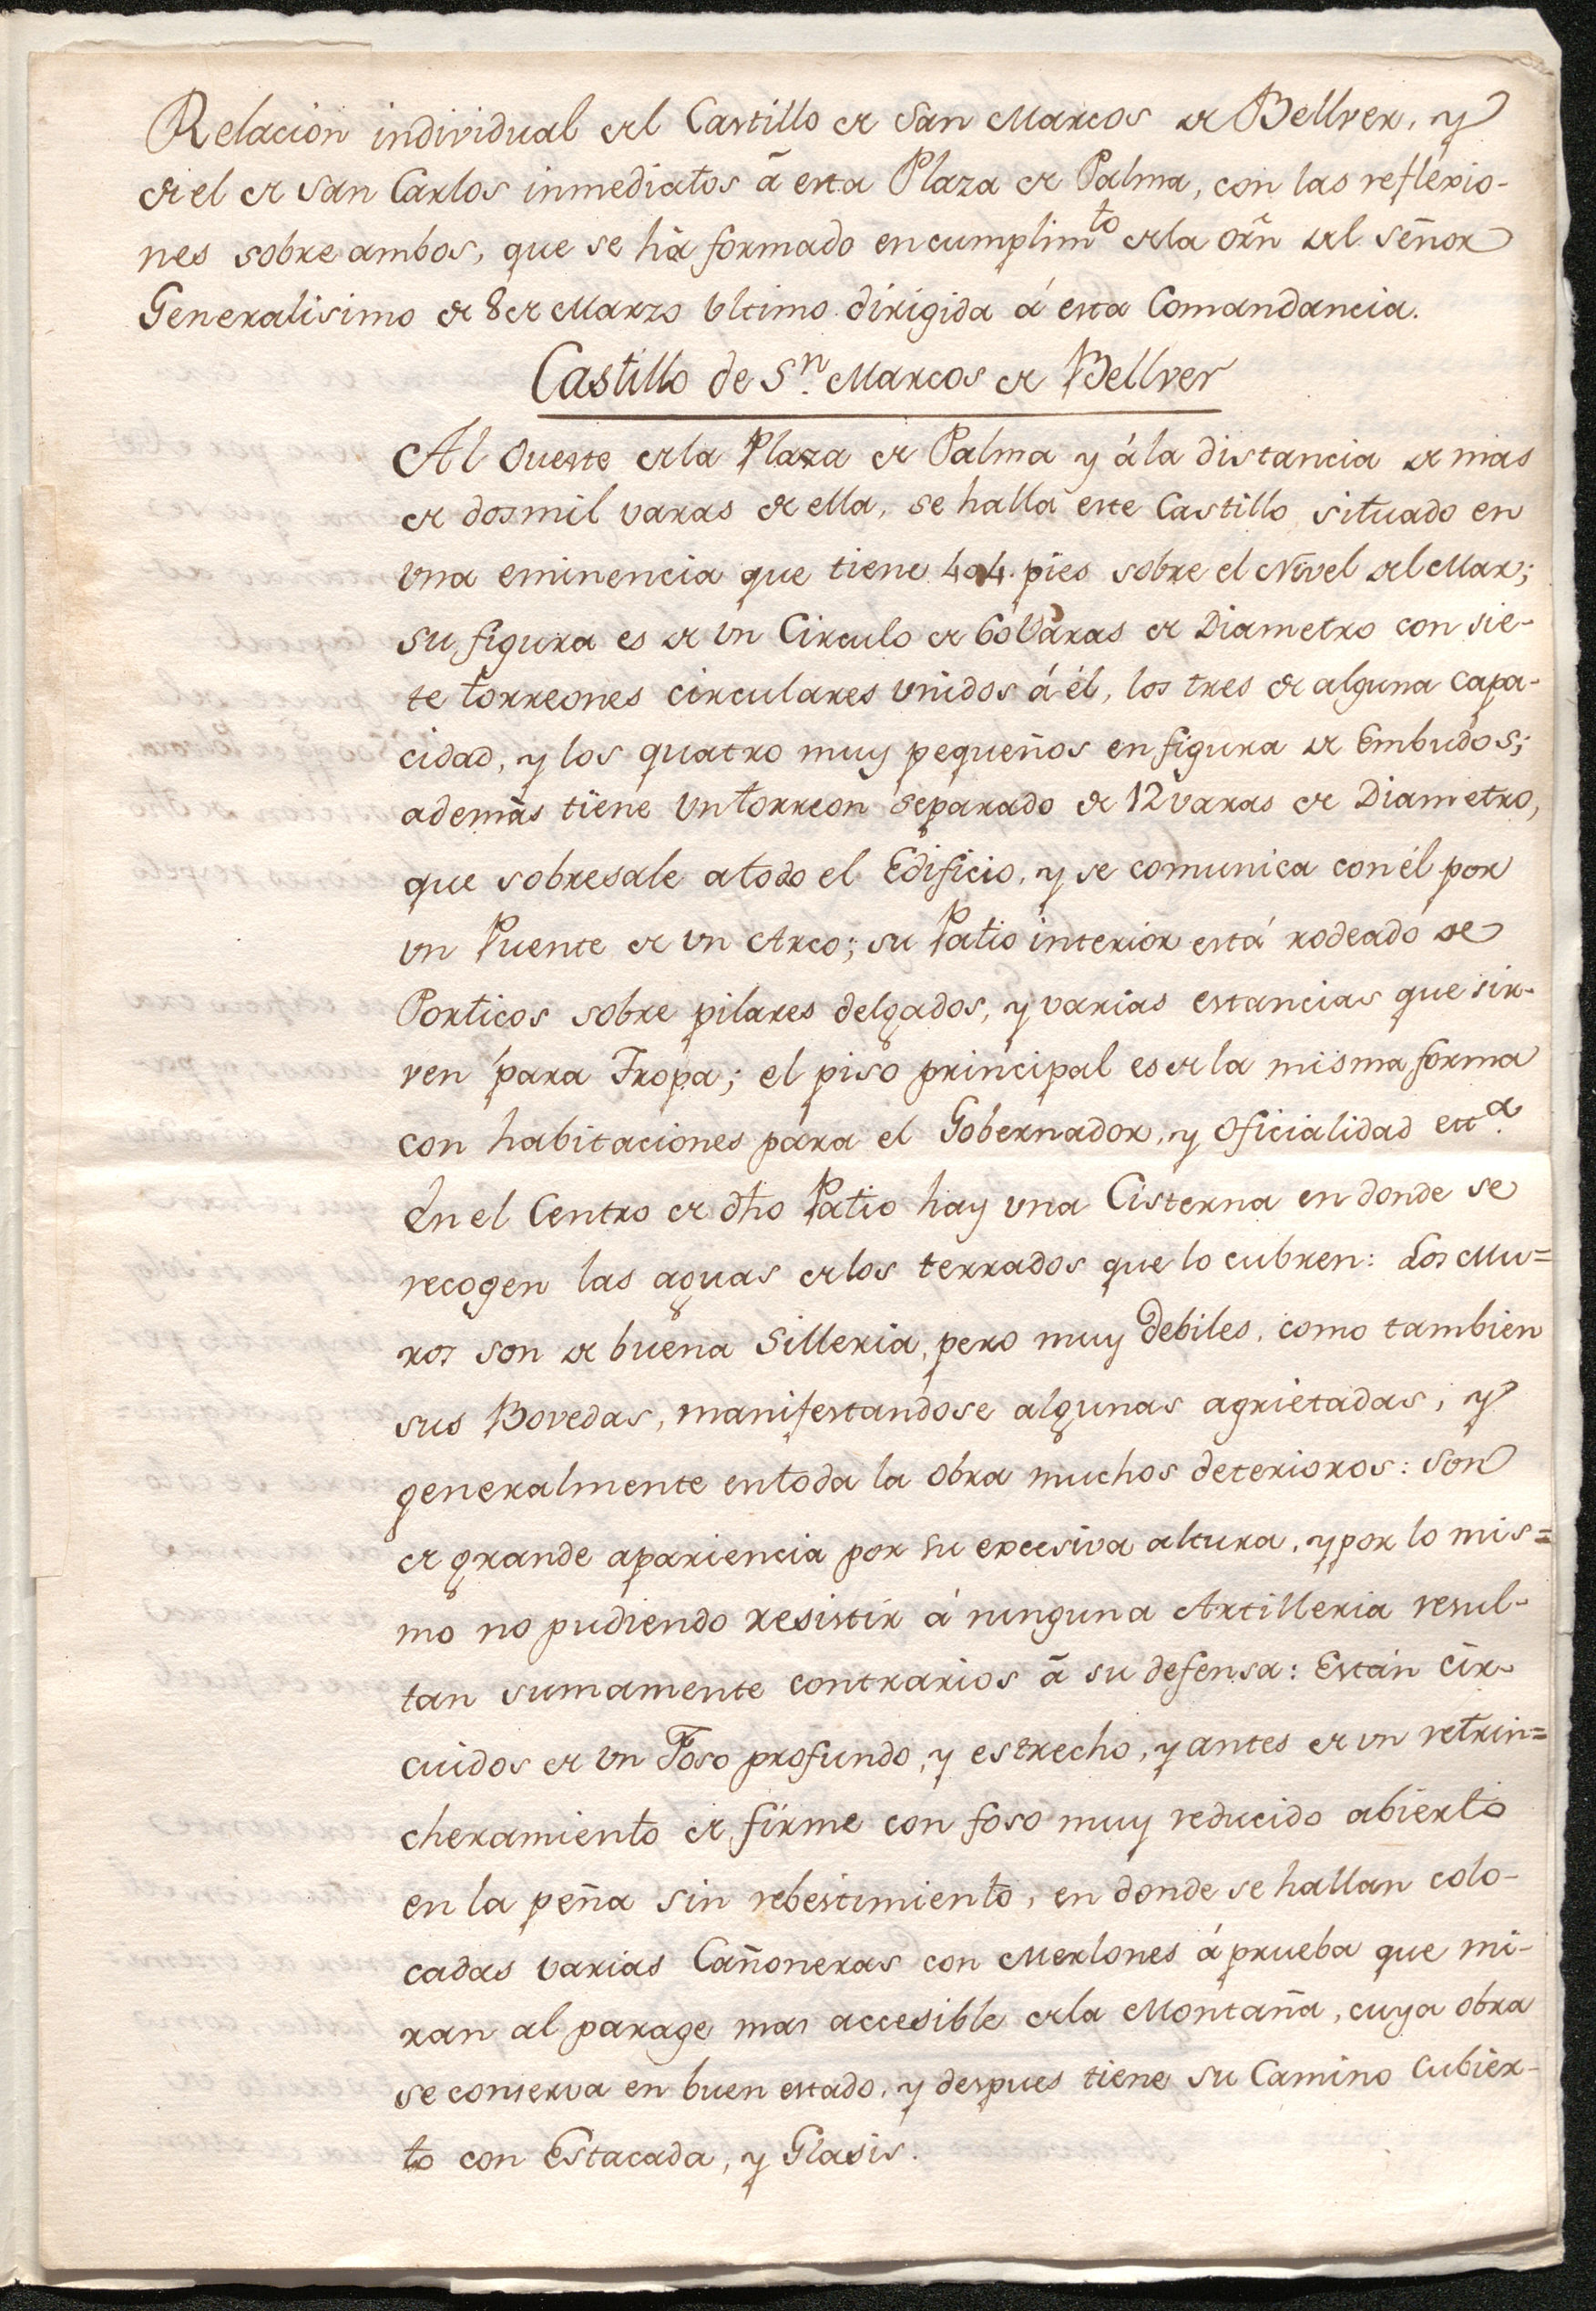 Relacion individual del Castillo de San Marcos de Bellver, y
de el de San Carlos inmediatos â esta Plaza de Palma, con las reflexio-
nes sobre ambos, que se hà formado en cumplim.to de la orñ del señor
Generalisimo de 8 de Marzo vltimo dirigida á esta Comandancia.
Castillo de S.n Marcos de Bellver
Al Oueste de la Plaza de Palma y á la distancia de mas
de dosmil varas de ella, se halla este Castillo situado en
vna eminencia que tiene 404. pies sobre el Nivel del Mar;
su figura es de vn Circulo de 60 Varas de Diametro con sie-
te torreones circulares vnidos á él, los tres de alguna capa-
cidad, y los quatro muy pequeños en figura de Embudos;
además tiene vn torreon separado de 12 varas de Diametro,
que sobresale a todo el Edificio, y se comunica con él por
vn Puente de vn Arco; su Patio interior está rodeado de
Porticos sobre pilares delgados, y varias estancias que sir-
ven para Tropa; el piso principal es de la misma forma
con habitaciones para el Gobernador, y Oficialidad ett.a
En el Centro de dho Patio hay vna Cisterna en donde se
recogen las aguas de los terrados que lo cubren: Los Mu=
ros son de buena Silleria, pero muy debiles, como tambien
sus Bovedas, manifestandose algunas agrietadas, y
generalmente en toda la obra muchos deterioros: son
de grande apariencia por su excesiva altura, y por lo mis=
mo no pudiendo resistir á ninguna Artilleria resul-
tan sumamente contrarios â su defensa: Están cir-
cuidos de vn Foso profundo, y estrecho, y antes de vn retrin=
cheramiento de firme con foso muy reducido abierto
en la peña sin rebestimiento, en donde se hallan colo-
cadas varias Cañoneras con Merlones á prueba que mi-
ran al parage mas accesible de la Montaña, cuya obra
se conserva en buen estado, y despues tiene su Camino Cubier-
to con Estacada, y Glasis.